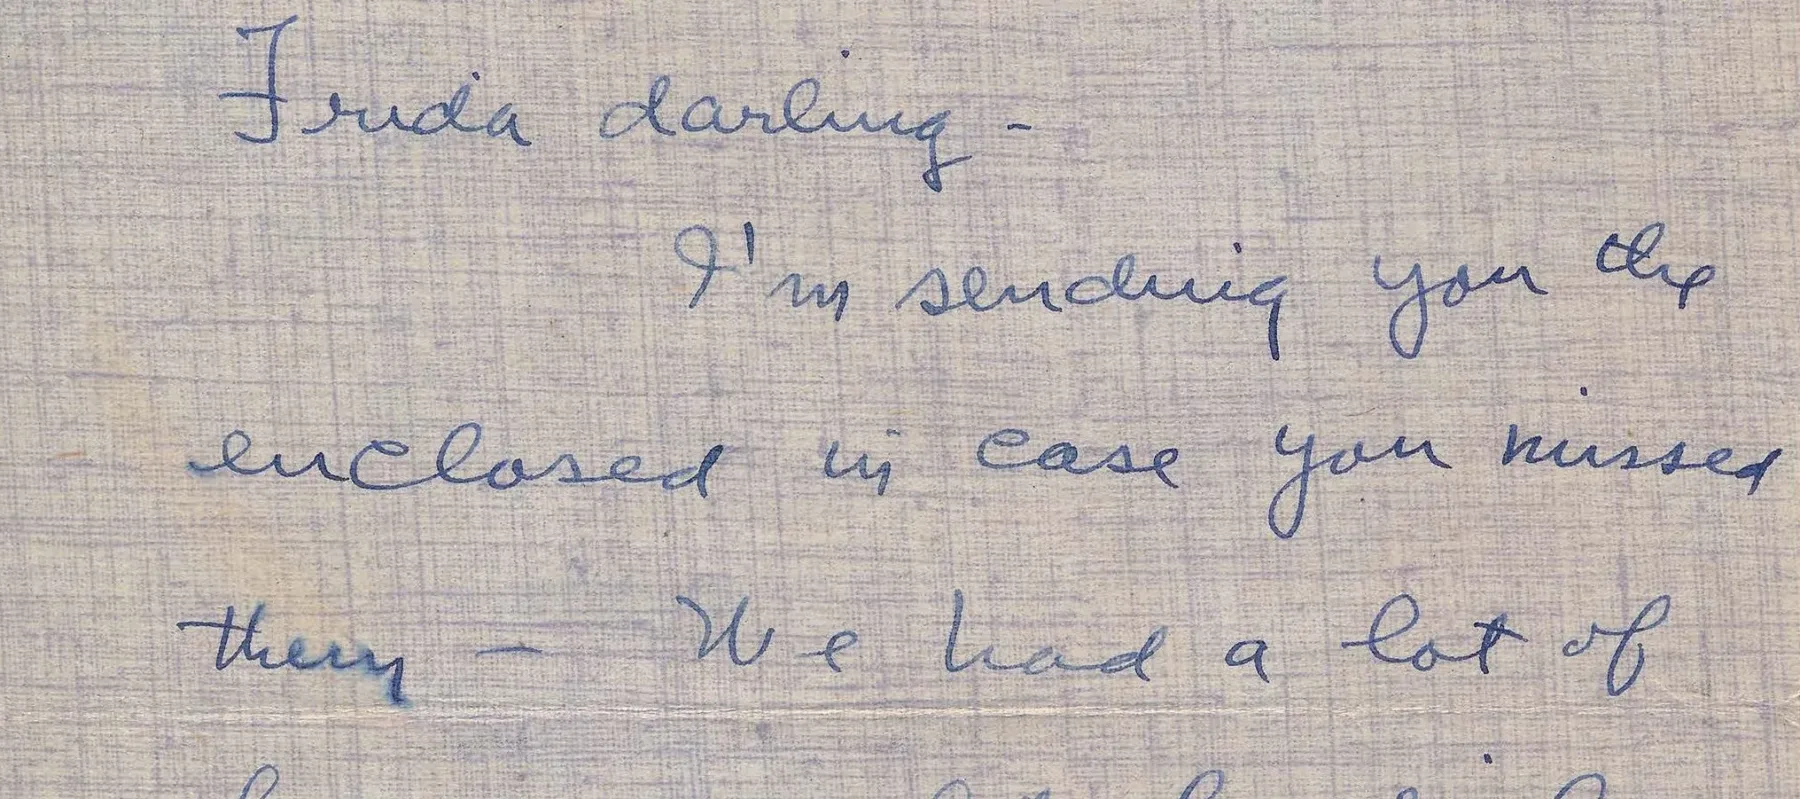 Frida darling -
I'm sending you the
enclosed in case you missed
them — We had a lot of